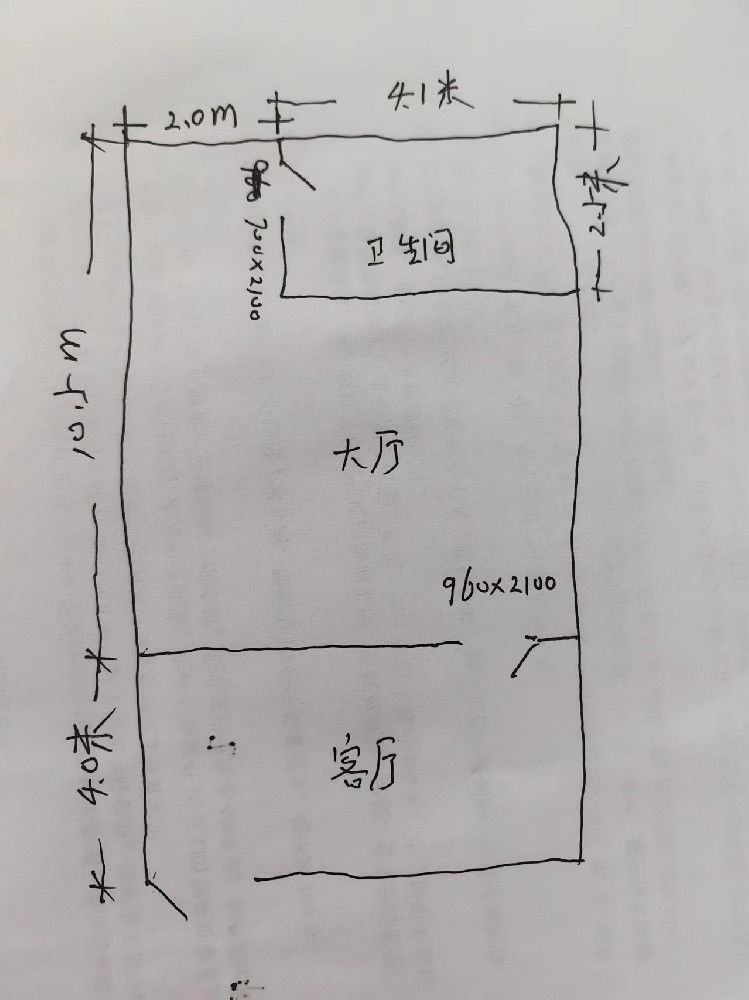 2.0m
4.1米
2.5米
700×2100
卫生间
10.5m
大厅
960×2100
4.0米
客厅